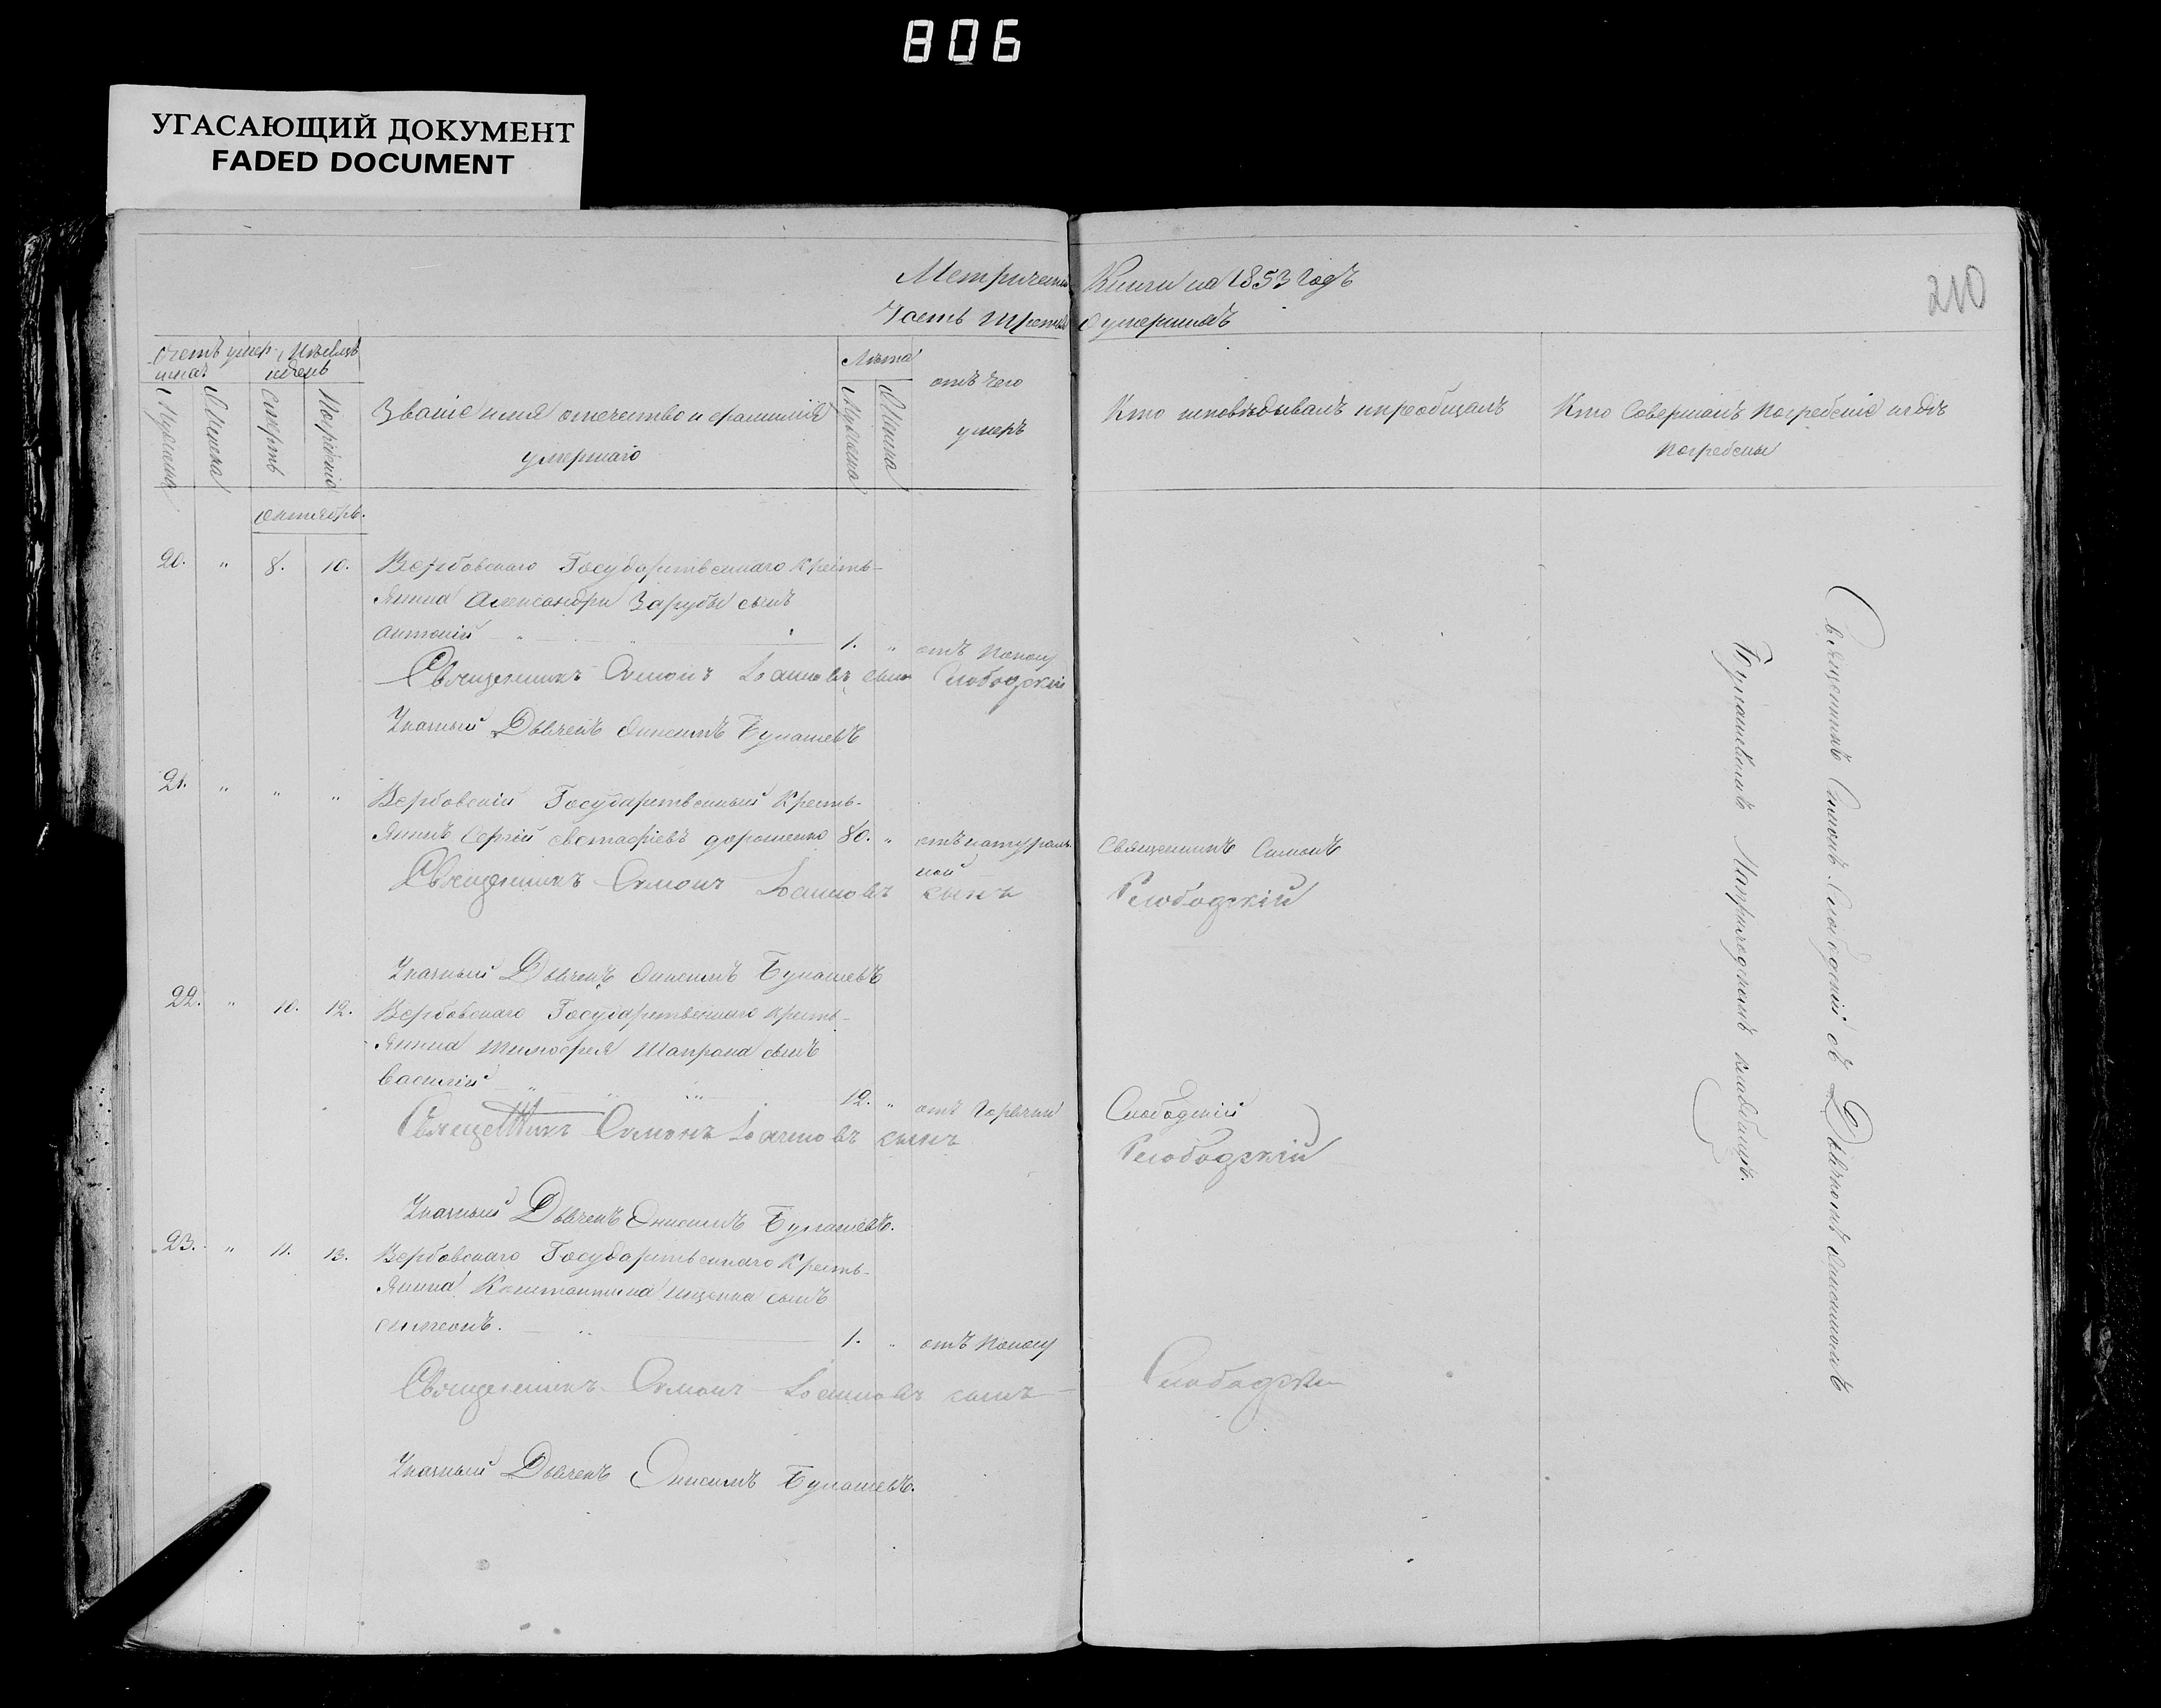 806
УГАСАЮЩИЙ ДОКУМЕНТ
FADED DOCUMENT
Метрической Книги на 1853 Годъ
Часть третья о умершихъ
210
Счетъ умер- Мѣсяцъ
шихъ и день
Мужеска
Женска
Смерть
Погребеніе
Званіе имя отечество и фамилія
умершаго
Лѣта
Мужеска
Женска
отъ чего
умеръ
Кто исповѣдывалъ и пріобщалъ
Кто Совершалъ погребеніе и гдѣ
погребены
Октябрь.
20. " 8. 10. Вербовскаго Государственнаго Кресть-
янина Александра Зарубы сынъ
Антоній 1. " отъ поносу
Священникъ Симонъ Іоанновъ сынъ Слободскій
Указный Дьячекъ Онисимъ Булашевъ
21. " " " Вербовскій Государственный Кресть-
янинъ Сергій Евстафіевъ дорошенко 80. " отъ натураль-
ной
Священникъ Симонъ
Священникъ Симонъ Іоанновъ сынъ Слободскій
Указный Дьячекъ Онисимъ Булашевъ
22. " 10. 12. Вербовскаго Государственнаго кресть-
янина тимофея Шапрана сынъ
василій 12. " отъ горячки
Слободскій
Священникъ Симонъ Іоанновъ сынъ Слободскій
Указный Дьячекъ Онисимъ Булашевъ.
23. " 11. 13. Вербовскаго Государственнаго Кресть-
янина Константина ищенка сынъ
симеонъ. 1. " отъ поносу
Священникъ Симонъ Іоанновъ сынъ Слободскій
Указный Дьячекъ Онисимъ Булашевъ.
Священникъ Симонъ Слободскій съ Дьячкомъ Онисимомъ
Булашевымъ на приходскомъ кладбищѣ.